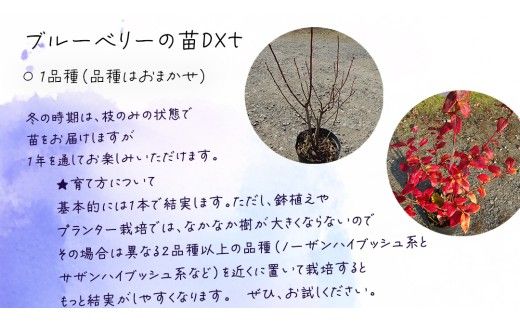 ブルーベリーの苗DX七
○ 1品種(品種はおまかせ)
冬の時期は、枝のみの状態で
苗をお届けしますが
1年を通してお楽しみいただけます。
★育て方について
基本的には1本で結実します。ただし、鉢植えや
プランター栽培では、なかなか樹が大きくならないので
その場合は異なる2品種以上の品種(ノーザンハイブッシュ系と
サザンハイブッシュ系など)を近くに置いて栽培すると
もっと結実がしやすくなります。 ぜひ、お試しください。